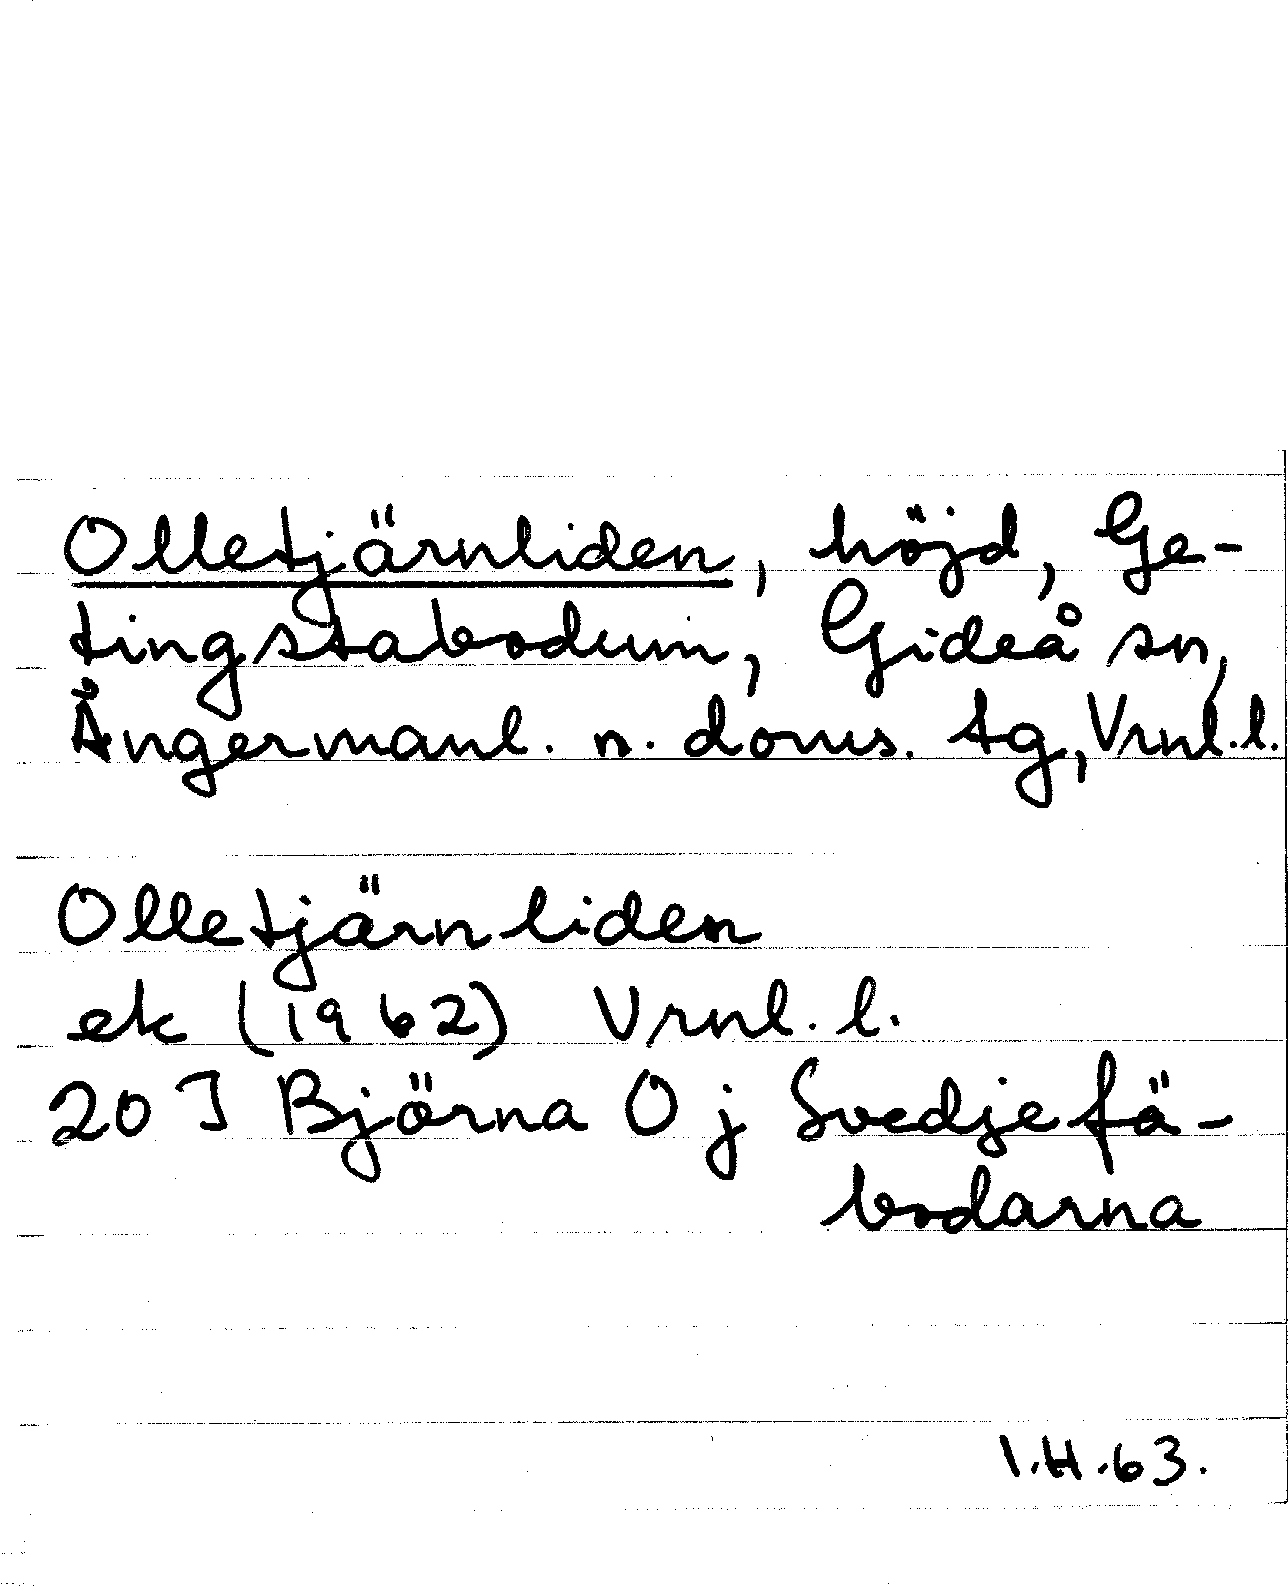 Olletjärnliden, höjd, Ge-
tingstabodum, Gideå sn,
Ångermanl. n. doms. tg, Vrnl. l.
Olletjärnliden
ek (1962) Vrnl. l.
20 J Björna O j Svedjefä-
bodarna
I.H.63.